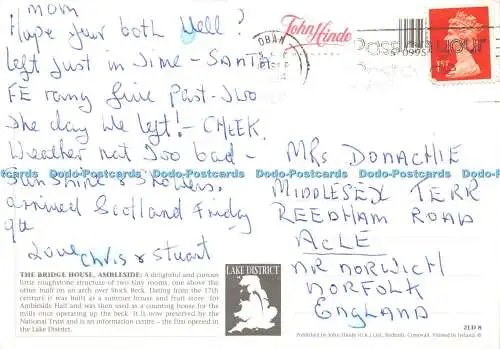 mom
Hope your both Well?
left Just in Time - SANTA
FE rang five Past Two
The day We left! - CHEEK.
Weather not Too bad -
Sunshine & Showers.
arrived Scotland Friday
9th
Love Chris & Stuart
THE BRIDGE HOUSE, AMBLESIDE: A delightful and curious
little roughstone structure of two tiny rooms, one above the
other built on an arch over Stock Beck. Dating from the 17th
century it was built as a summer house and fruit store for
Ambleside Hall and was then used as a counting house for the
mills once operating up the beck. It is now preserved by the
National Trust and is an information centre - the first opened in
the Lake District.
LAKE DISTRICT
John Hinde
OBAN
1ST
MRS DONACHIE
MIDDLESEX TERR
REEDHAM ROAD
ACLE
NR NORWICH
NORFOLK
ENGLAND
2LD 8
Published by John Hinde (U.K.) Ltd., Redruth, Cornwall. Printed in Ireland. ©
Dodo-Postcards
Dodo-Postcards
Dodo-Postcards
Dodo-Postcards